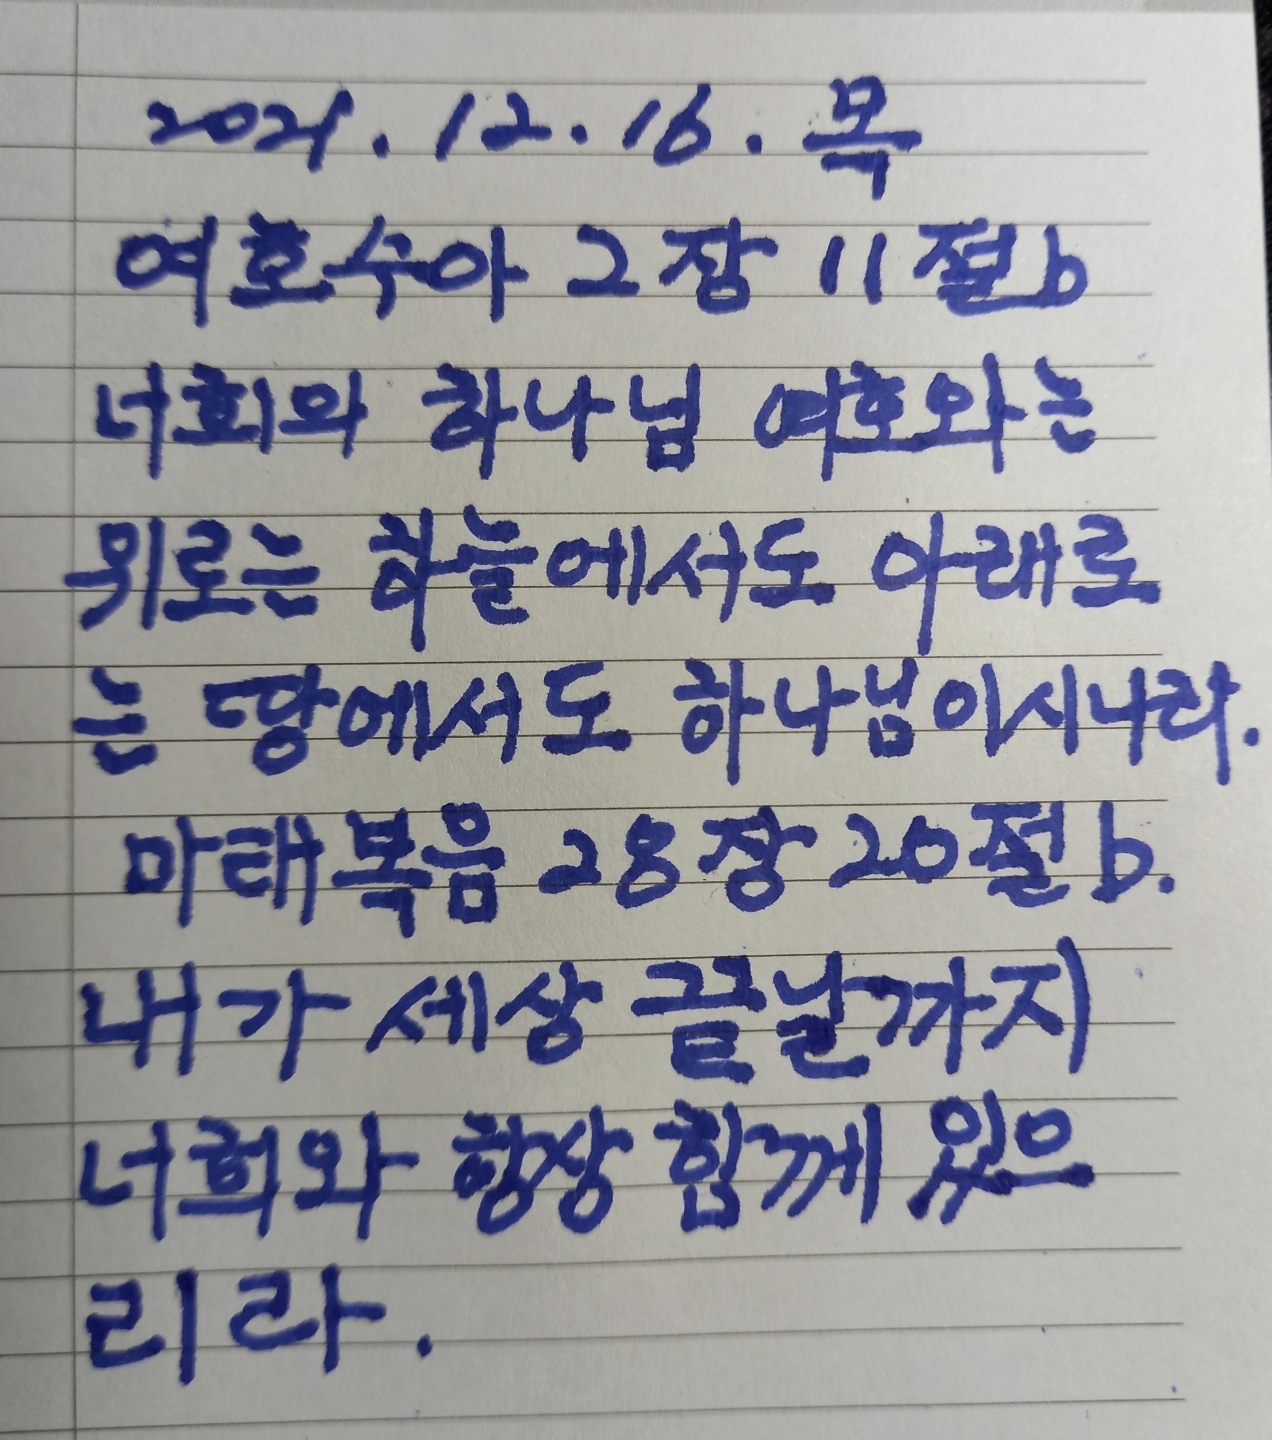 2021.12.16.목
여호수아 2장 11절b
너희의 하나님 여호와는
위로는 하늘에서도 아래로
는 땅에서도 하나님이시니라.
마태복음 28장 20절b.
내가 세상 끝날까지
너희와 항상 함께 있으
리라.